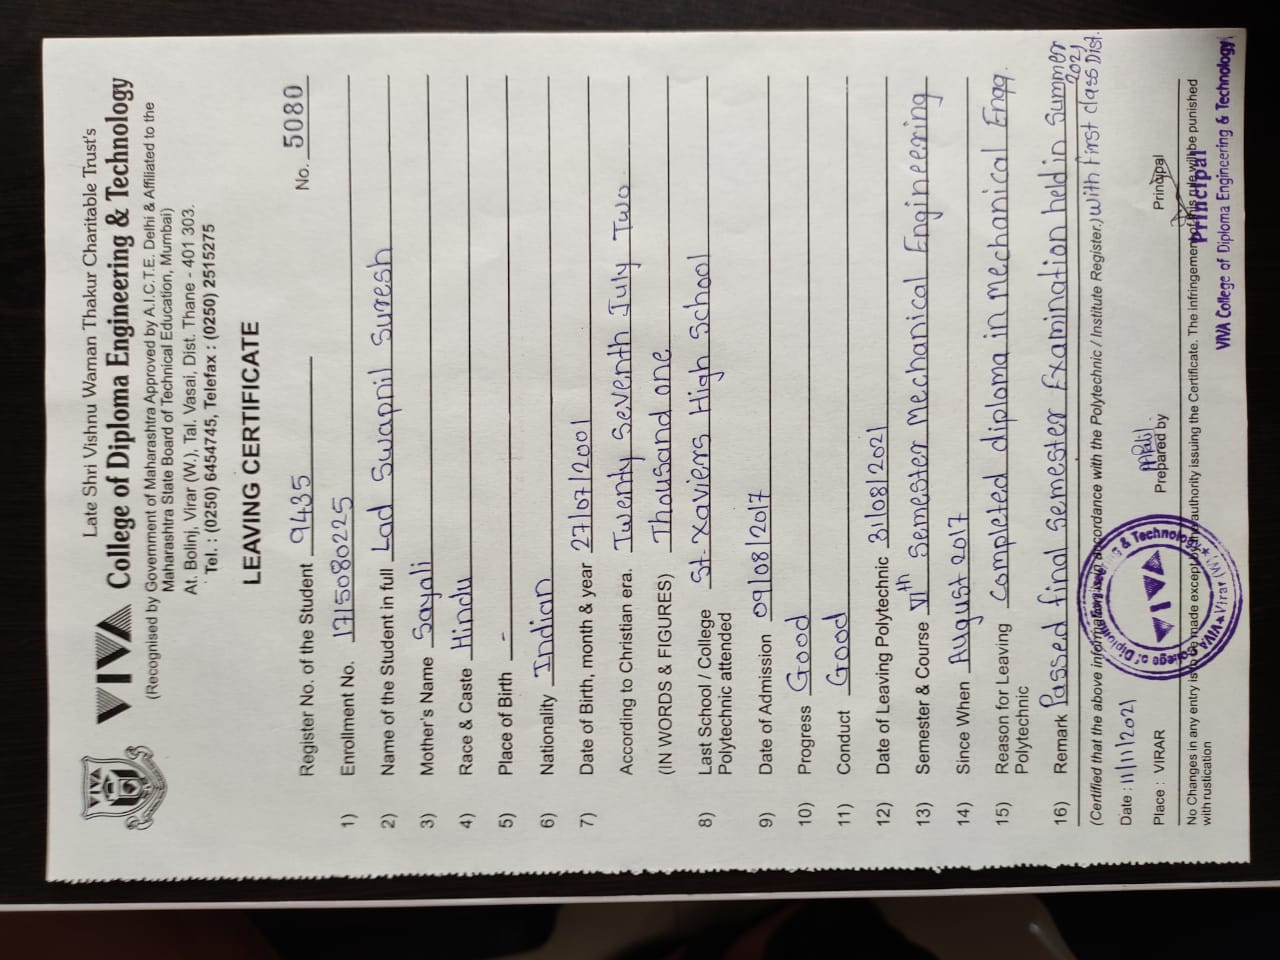 VIVA
Late Shri Vishnu Waman Thakur Charitable Trust's
VIVA College of Diploma Engineering & Technology
(Recognised by Government of Maharashtra Approved by A.I.C.T.E. Delhi & Affiliated to the
Maharashtra State Board of Technical Education, Mumbai)
At. Bolinj, Virar (W.), Tal. Vasai, Dist. Thane - 401 303.
Tel. : (0250) 6454745, Telefax : (0250) 2515275
LEAVING CERTIFICATE
Register No. of the Student 9435 No. 5080
1) Enrollment No. 1715080225
2) Name of the Student in full Lad Swapnil Suresh
3) Mother's Name Sayali
4) Race & Caste Hindu
5) Place of Birth -
6) Nationality Indian
7) Date of Birth, month & year 27/07/2001
According to Christian era. Twenty Seventh July Two
(IN WORDS & FIGURES) Thousand one
8) Last School / College St. Xaviers High School
Polytechnic attended
9) Date of Admission 09/08/2017
10) Progress Good
11) Conduct Good
12) Date of Leaving Polytechnic 31/08/2021
13) Semester & Course VIth Semester Mechanical Engineering
14) Since When August 2017
15) Reason for Leaving Completed diploma in Mechanical Engg.
Polytechnic
16) Remark Passed final Semester Examination held in Summer
2021
(Certified that the above information is in accordance with the Polytechnic / Institute Register.) with First class Dist.
Date : 11/11/2021
Place : VIRAR Prepared by Principal
No Changes in any entry is to be made except by the authority issuing the Certificate. The infringement of this rule will be punished
with rustication
Principal
VIVA College of Diploma Engineering & Technology
VIVA College of Diploma Engineering & Technology
VIVA
Virar (W)